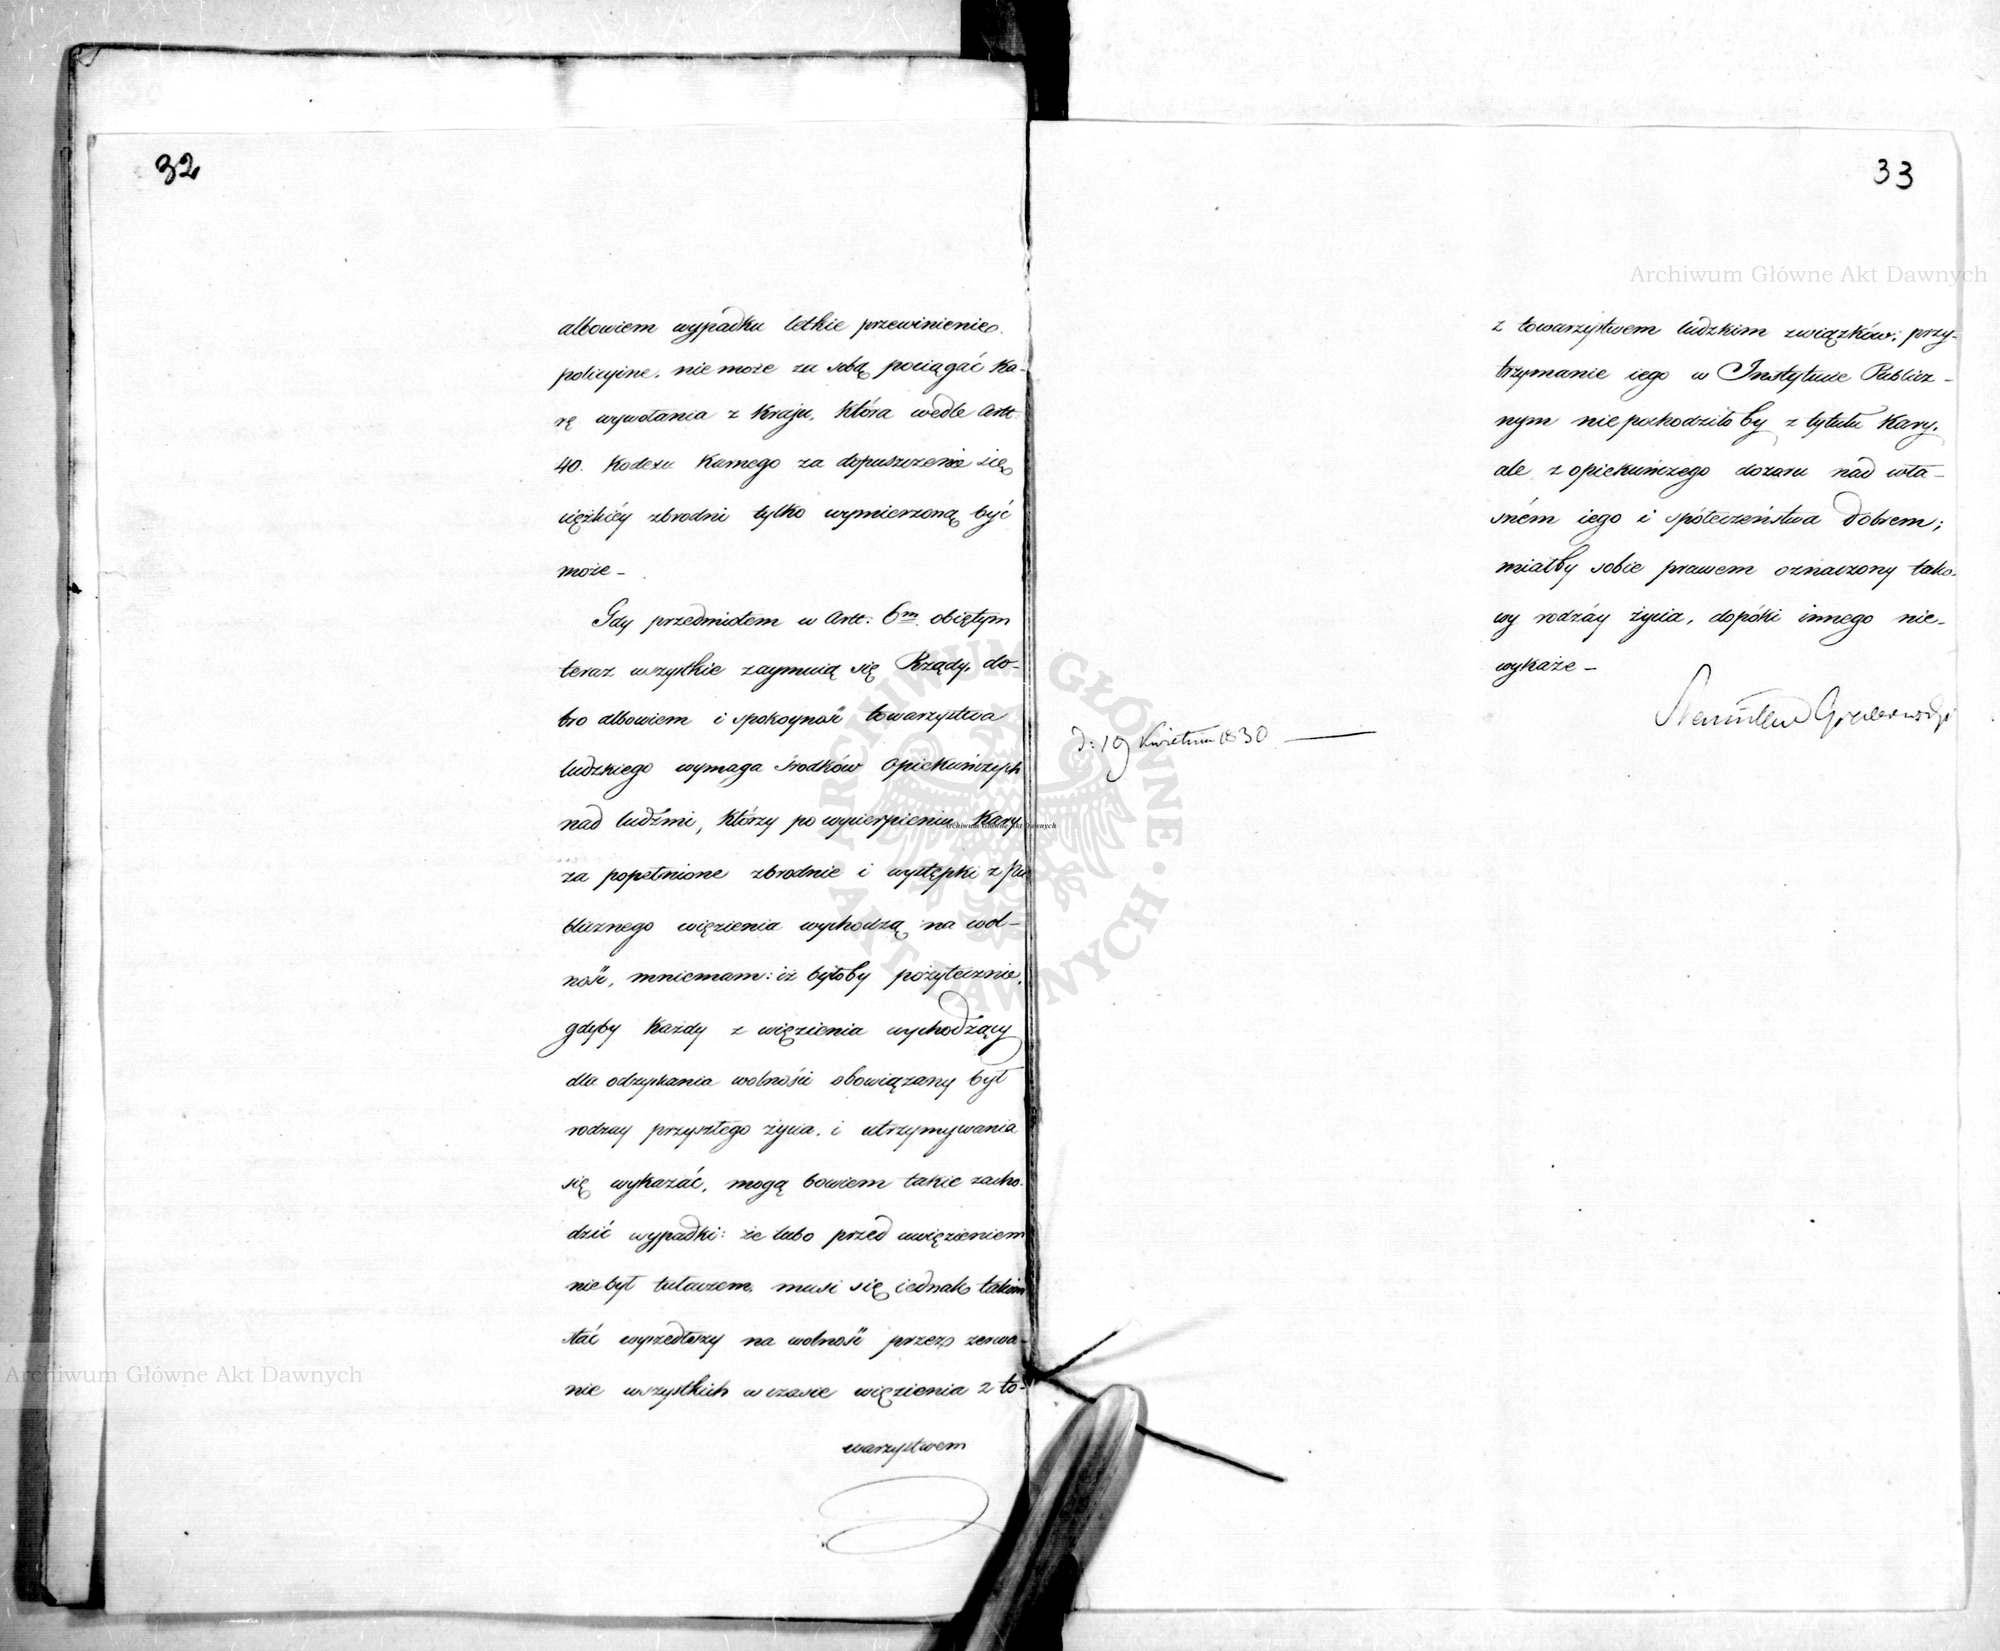 32
albowiem wypadku letkie przewinienie
policyine, nie może za sobą pociągać ka-
rę wywołania z kraju, która wedle Artt.
40. Kodexu Karnego za dopuszczenie się
ciężkiéy zbrodni tylko wymierzoną być
może –
Gdy przedmiotem w Artt: 6m obiętym
teraz wszystkie zaymuią się Rządy, do-
bro albowiem i spokoyność towarzystwa
ludzkiego wymaga środków opiekuńczych
nad ludźmi, którzy po wycierpieniu kary
za popełnione zbrodnie i występki z Pu
blicznego więzienia wychodzą na wol-
ność, mniemam: iż byłoby pożytecznie,
gdyby każdy z więzienia wychodzący
dla odzyskania wolności obowiązany był
rodzay przyszłego życia, i utrzymywania
się wykazać, mogą bowiem takie zacho-
dzić wypadki: że lubo przed uwięzieniem
nie był tułaczem, musi się iednak takim
stać wyszedłszy na wolność przez zerwa-
nie wszystkich w czasie więzienia z to-
warzystwem
33
z towarzystwem ludzkim związków; przy-
trzymanie iego w Instytucie Publicz-
nym nie pochodziło by z tytułu kary,
ale z opiekuńczego dozoru nad wła-
sném iego i społeczeństwa dobrem;
miałby sobie prawem oznaczony tako-
wy rodzáy życia, dopóki innego nie-
wykaże –
Stanisław Grabowski
d: 19 Kwietnia 1830
Archiwum Główne Akt Dawnych
Archiwum Główne Akt Dawnych
Archiwum Główne Akt Dawnych
ARCHIWUM GŁÓWNE AKT DAWNYCH